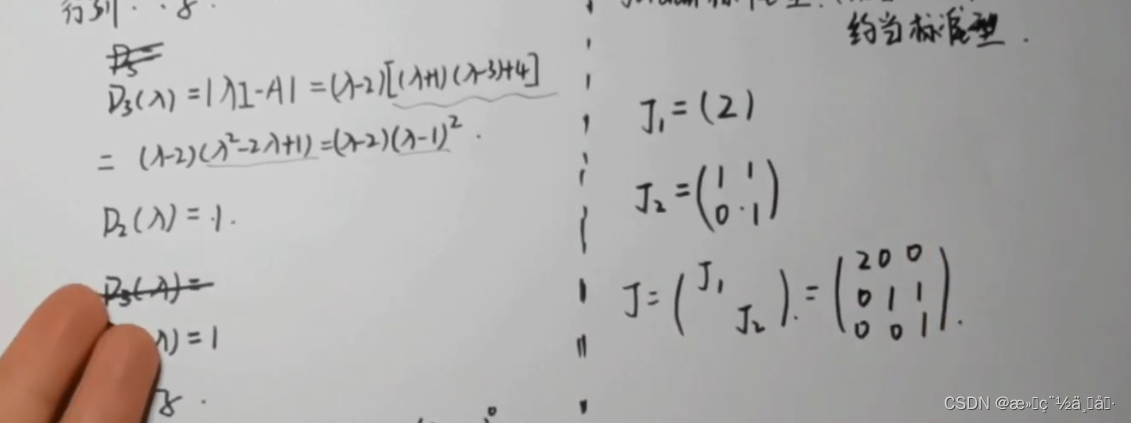 D₃(λ) = |λI-A| = (λ-2)[(λ+1)(λ-3)+4]
= (λ-2)(λ²-2λ+1) = (λ-2)(λ-1)².
D₂(λ) = 1.
D₃(λ) =
λ) = 1
约当标准型.
J₁ = (2)
J₂ = (1 1
0 1)
J = (J₁
J₂). = (2 0 0
0 1 1
0 0 1).
CSDN